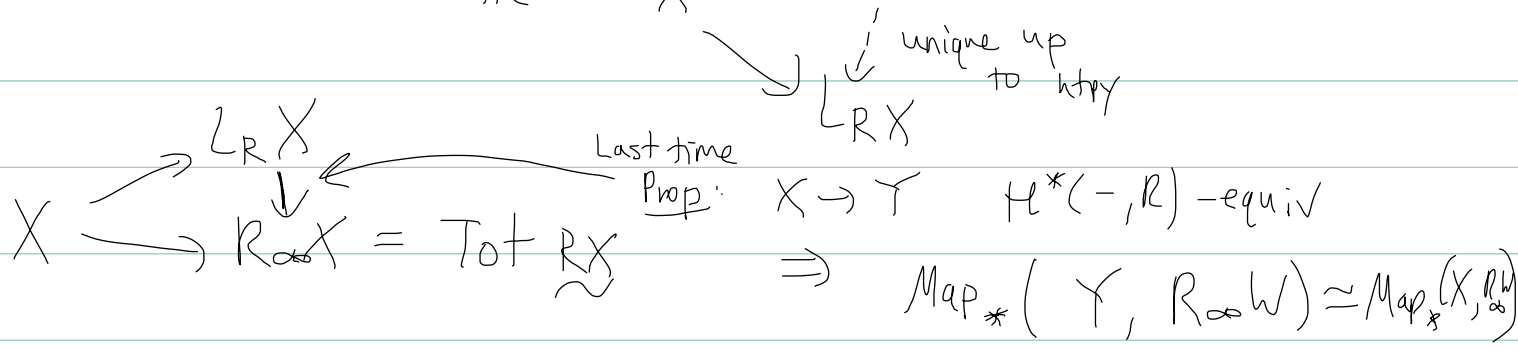 X
unique up
to htpy
L_R X
L_R X
Last time
Prop: X → Y H*(-,R) -equiv
X → R∞X = Tot RX
⇒ Map_*( Y, R∞W) ≃ Map_*(X, R∞W)